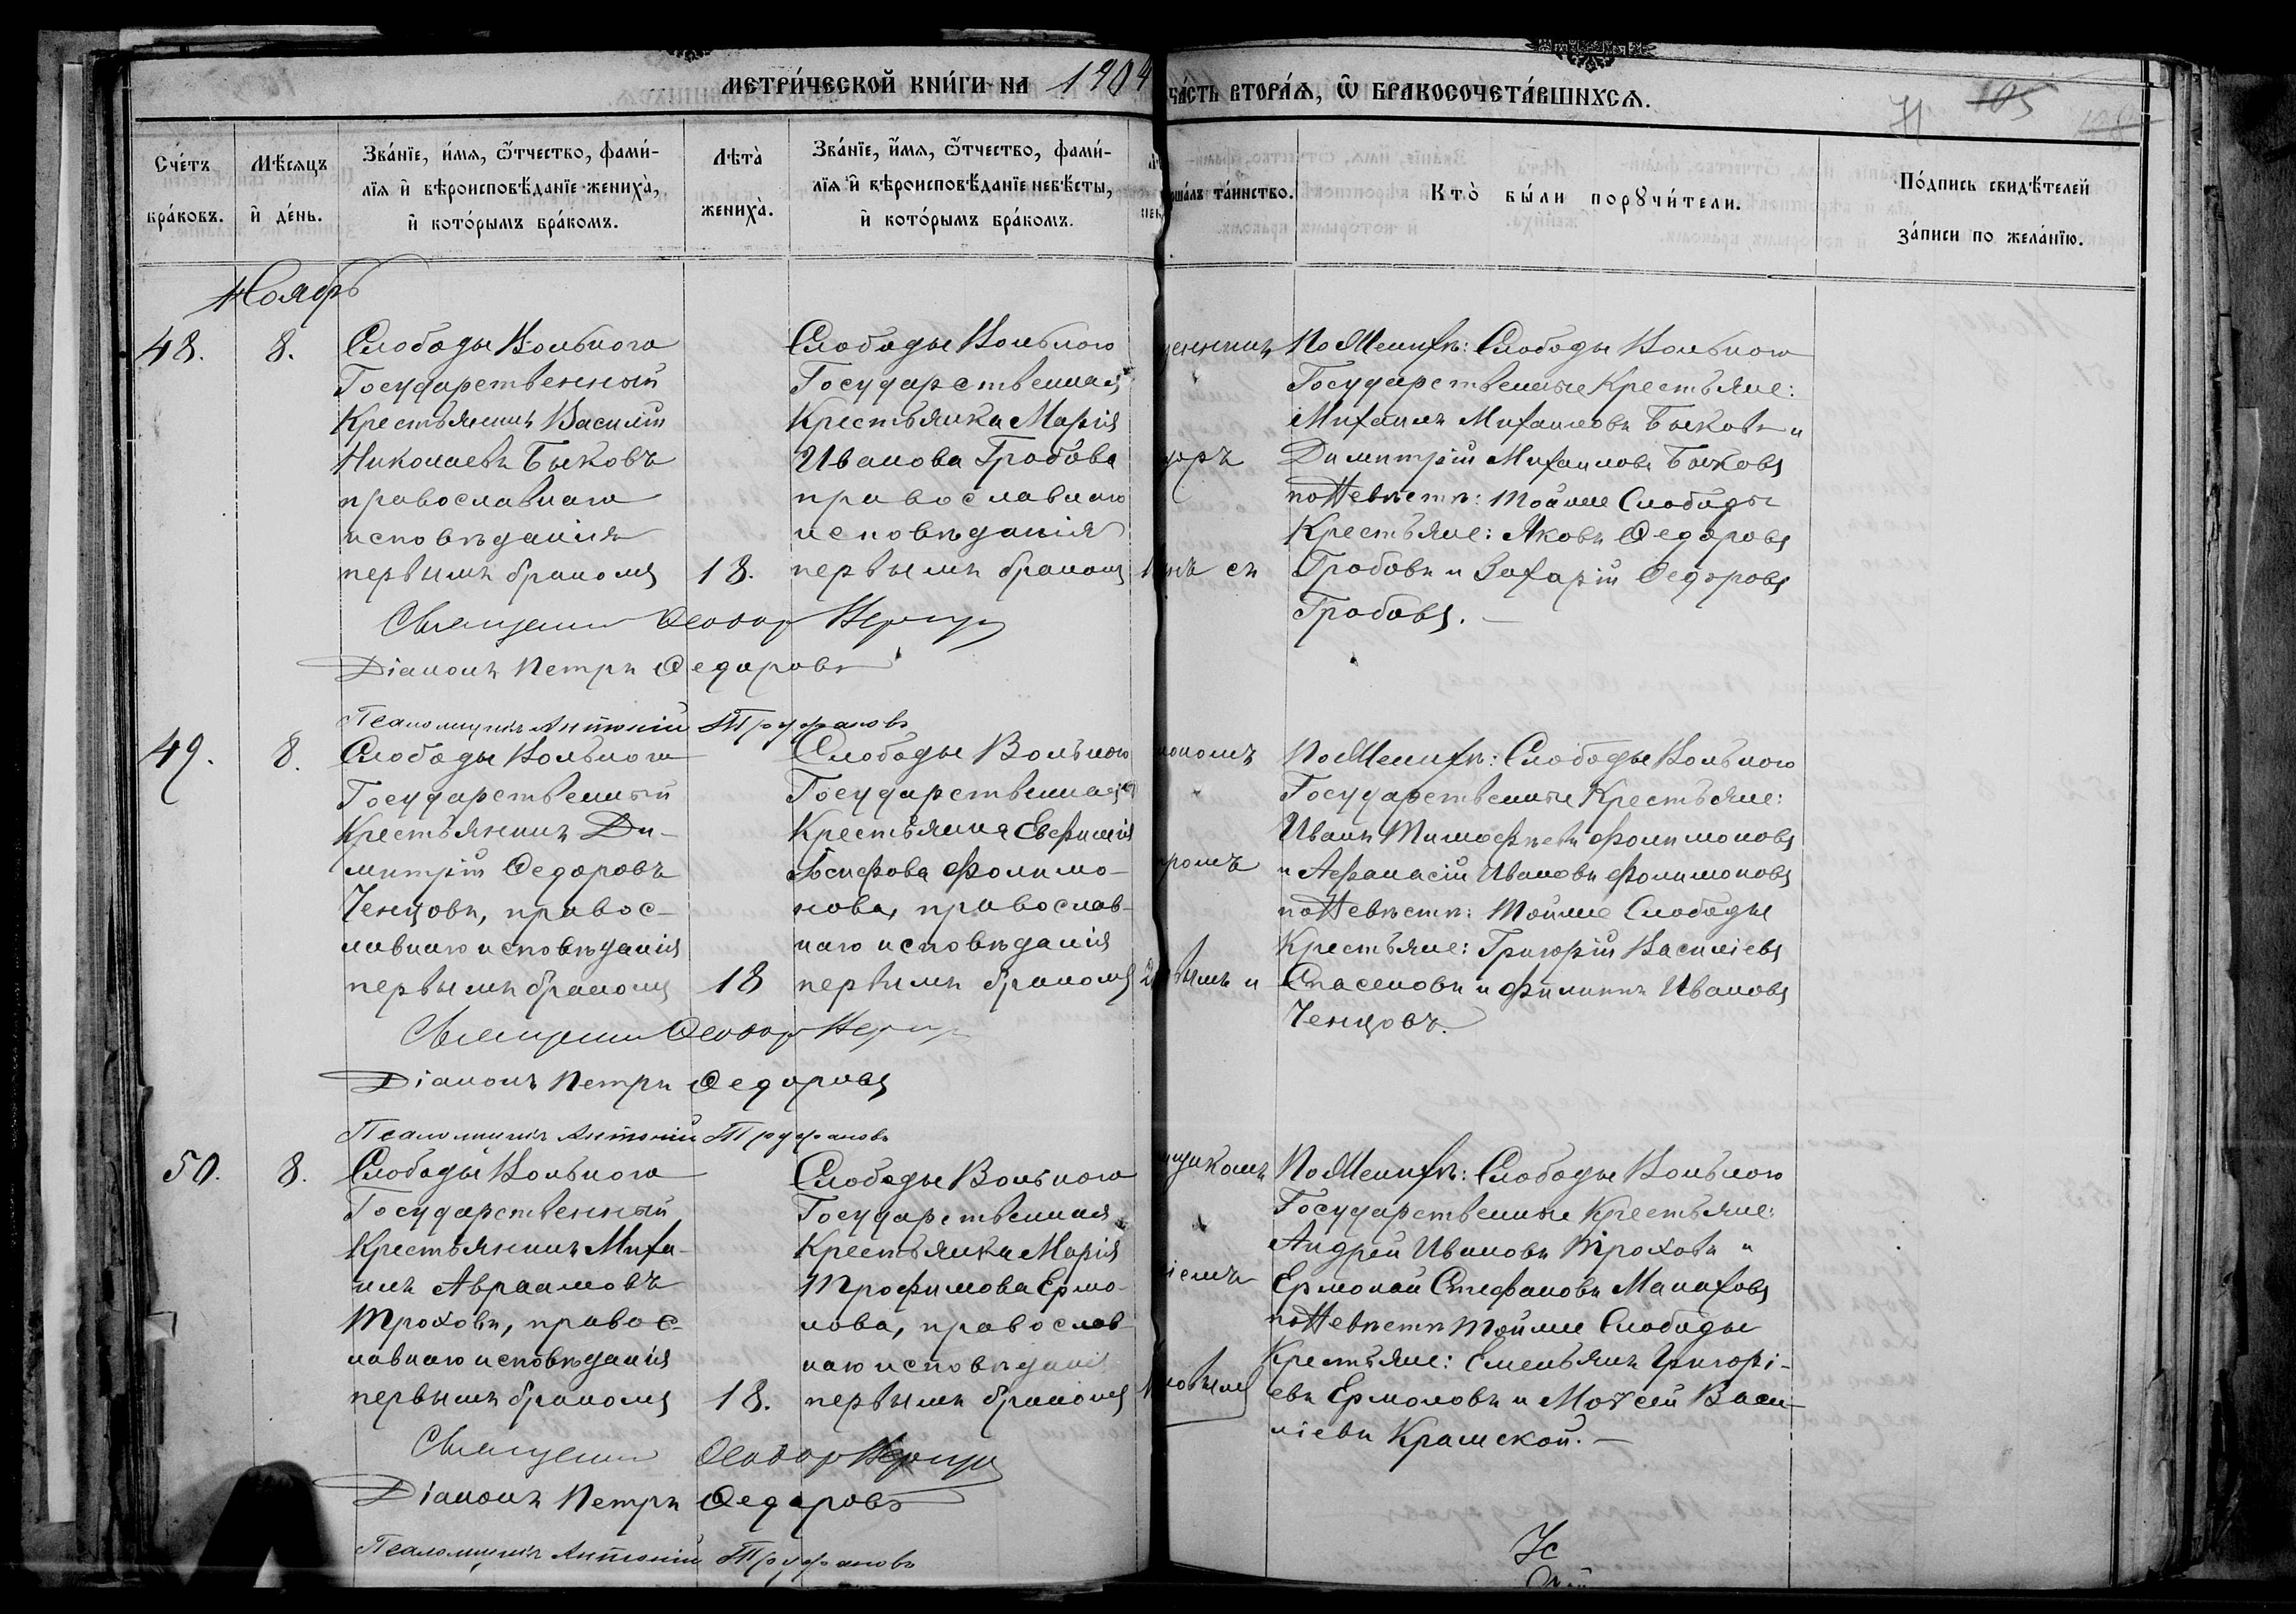 МЕТРИ́ЧЕСКОЙ КНИ́ГИ НА 1904
ЧА́СТЬ ВТОРА́Я, Ѿ БРАКОСОЧЕТА́ВШИХСЯ.
105
Сче́тъ бра́ковъ.
Мѣ́сяцъ и҆ де́нь.
Зва́нїе, и҆́мѧ, ѻ҆́тчество, фами́-
лїѧ и҆ вѣроисповѣ́данїе жениха̀,
и҆ кото́рымъ бра́комъ.
Лѣта̀ жениха̀.
Зва́нїе, и҆́мѧ, ѻ҆́тчество, фами́-
лїѧ и҆ вѣроисповѣ́данїе невѣ́сты,
и҆ кото́рымъ бра́комъ.
та́инство.
Кто̀ бы́ли порꙋчи́тели.
По́дпись свидѣ́телей
за́писи по жела́нїю.
Ноябрь
48.
8.
Слободы Вольного
Государственный
Крестьянинъ Василій
Николаевъ Быковъ
православнаго
исповѣданія
первымъ бракомъ
18.
Слободы Вольного
Государственная
Крестьянка Марія
Иванова Гробова
православнаго
исповѣданія
первымъ бракомъ
По Женихѣ: Слободы Вольного
Государственные Крестьяне:
Михаилъ Михаиловъ Быковъ и
Димитрій Михаиловъ Быковъ
по Невѣстѣ: той же Слободы
Крестьяне: Яковъ Ѳедоровъ
Гробовъ и Захарій Ѳедоровъ
Гробовъ.
Священникъ Ѳеодор
Діаконъ Петръ Ѳедоровъ
Псаломщикъ Антоній Труфановъ
49.
8.
Слободы Вольного
Государственный
Крестьянинъ Ди-
митрій Ѳедоровъ
Ченцовъ, правос-
лавнаго исповѣданія
первымъ бракомъ
18
Слободы Вольного
Государственная
Крестьянка Евфимія
Іосифова Филимо-
нова, православ-
наго исповѣданія
первымъ бракомъ
По Женихѣ: Слободы Вольного
Государственные Крестьяне:
Иванъ Тимофѣевъ Филимоновъ
и Афанасій Ивановъ Филимоновъ
по Невѣстѣ: той же Слободы
Крестьяне: Григорій Василіевъ
Спасеновъ и Филиппъ Ивановъ
Ченцовъ.
Священникъ Ѳеодор
Діаконъ Петръ Ѳедоровъ
Псаломщикъ Антоній Труфановъ
50.
8.
Слободы Вольного
Государственный
Крестьянинъ Миха-
илъ Авраамовъ
Троховъ, правос-
лавнаго исповѣданія
первымъ бракомъ
18.
Слободы Вольного
Государственная
Крестьянка Марія
Трофимова Ермо-
лова, православ-
наго исповѣданія
первымъ бракомъ
По Женихѣ: Слободы Вольного
Государственные Крестьяне:
Андрей Ивановъ Троховъ и
Ермолай Стефановъ Малаховъ
по Невѣстѣ той же Слободы
Крестьяне: Емельянъ Григорі-
евъ Ермоловъ и Моѵсей Васи-
ліевъ Крамской.
Священникъ Ѳеодор
Діаконъ Петръ Ѳедоровъ
Псаломщикъ Антоній Труфановъ